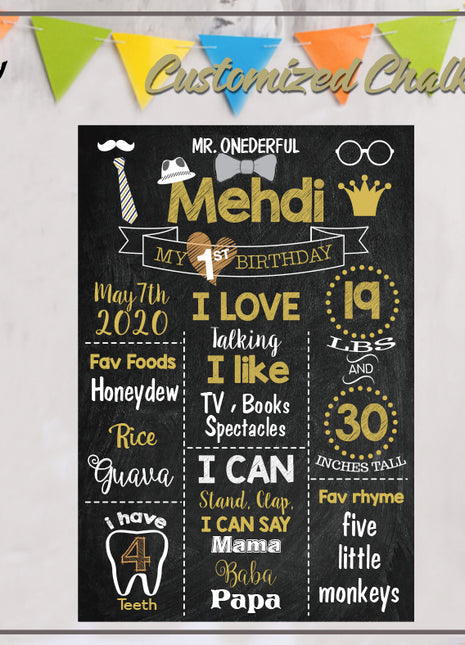 Customized Chalk
MR. ONEDERFUL
Mehdi
MY 1ST BIRTHDAY
May 7th
2020
Fav Foods
Honeydew
Rice
Guava
i have
4
Teeth
I LOVE
Talking
I like
TV , Books
Spectacles
I CAN
Stand, Clap,
I CAN SAY
Mama
Baba
Papa
19
LBS
AND
30
INCHES TALL
Fav rhyme
five
little
monkeys